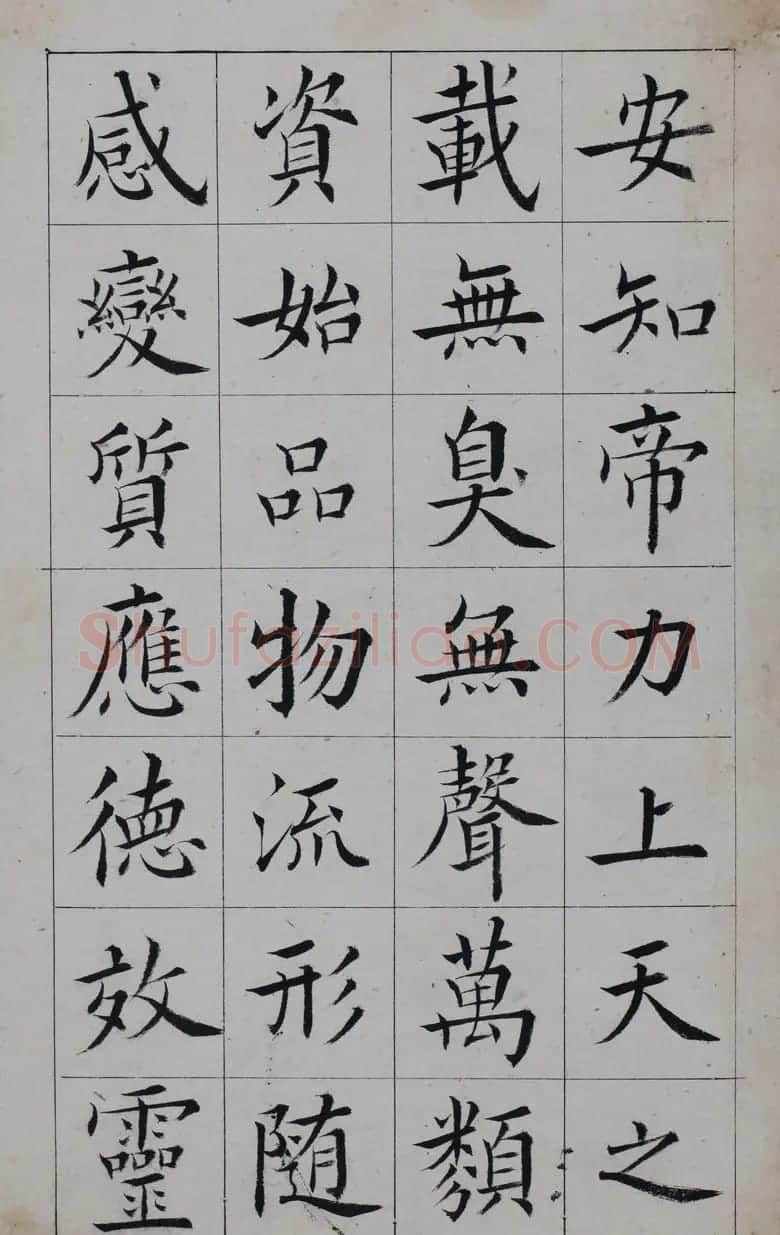 安知帝力上天之
載無臭無聲萬類
資始品物流形随
感變質應德效靈
Shufaziliao.COM